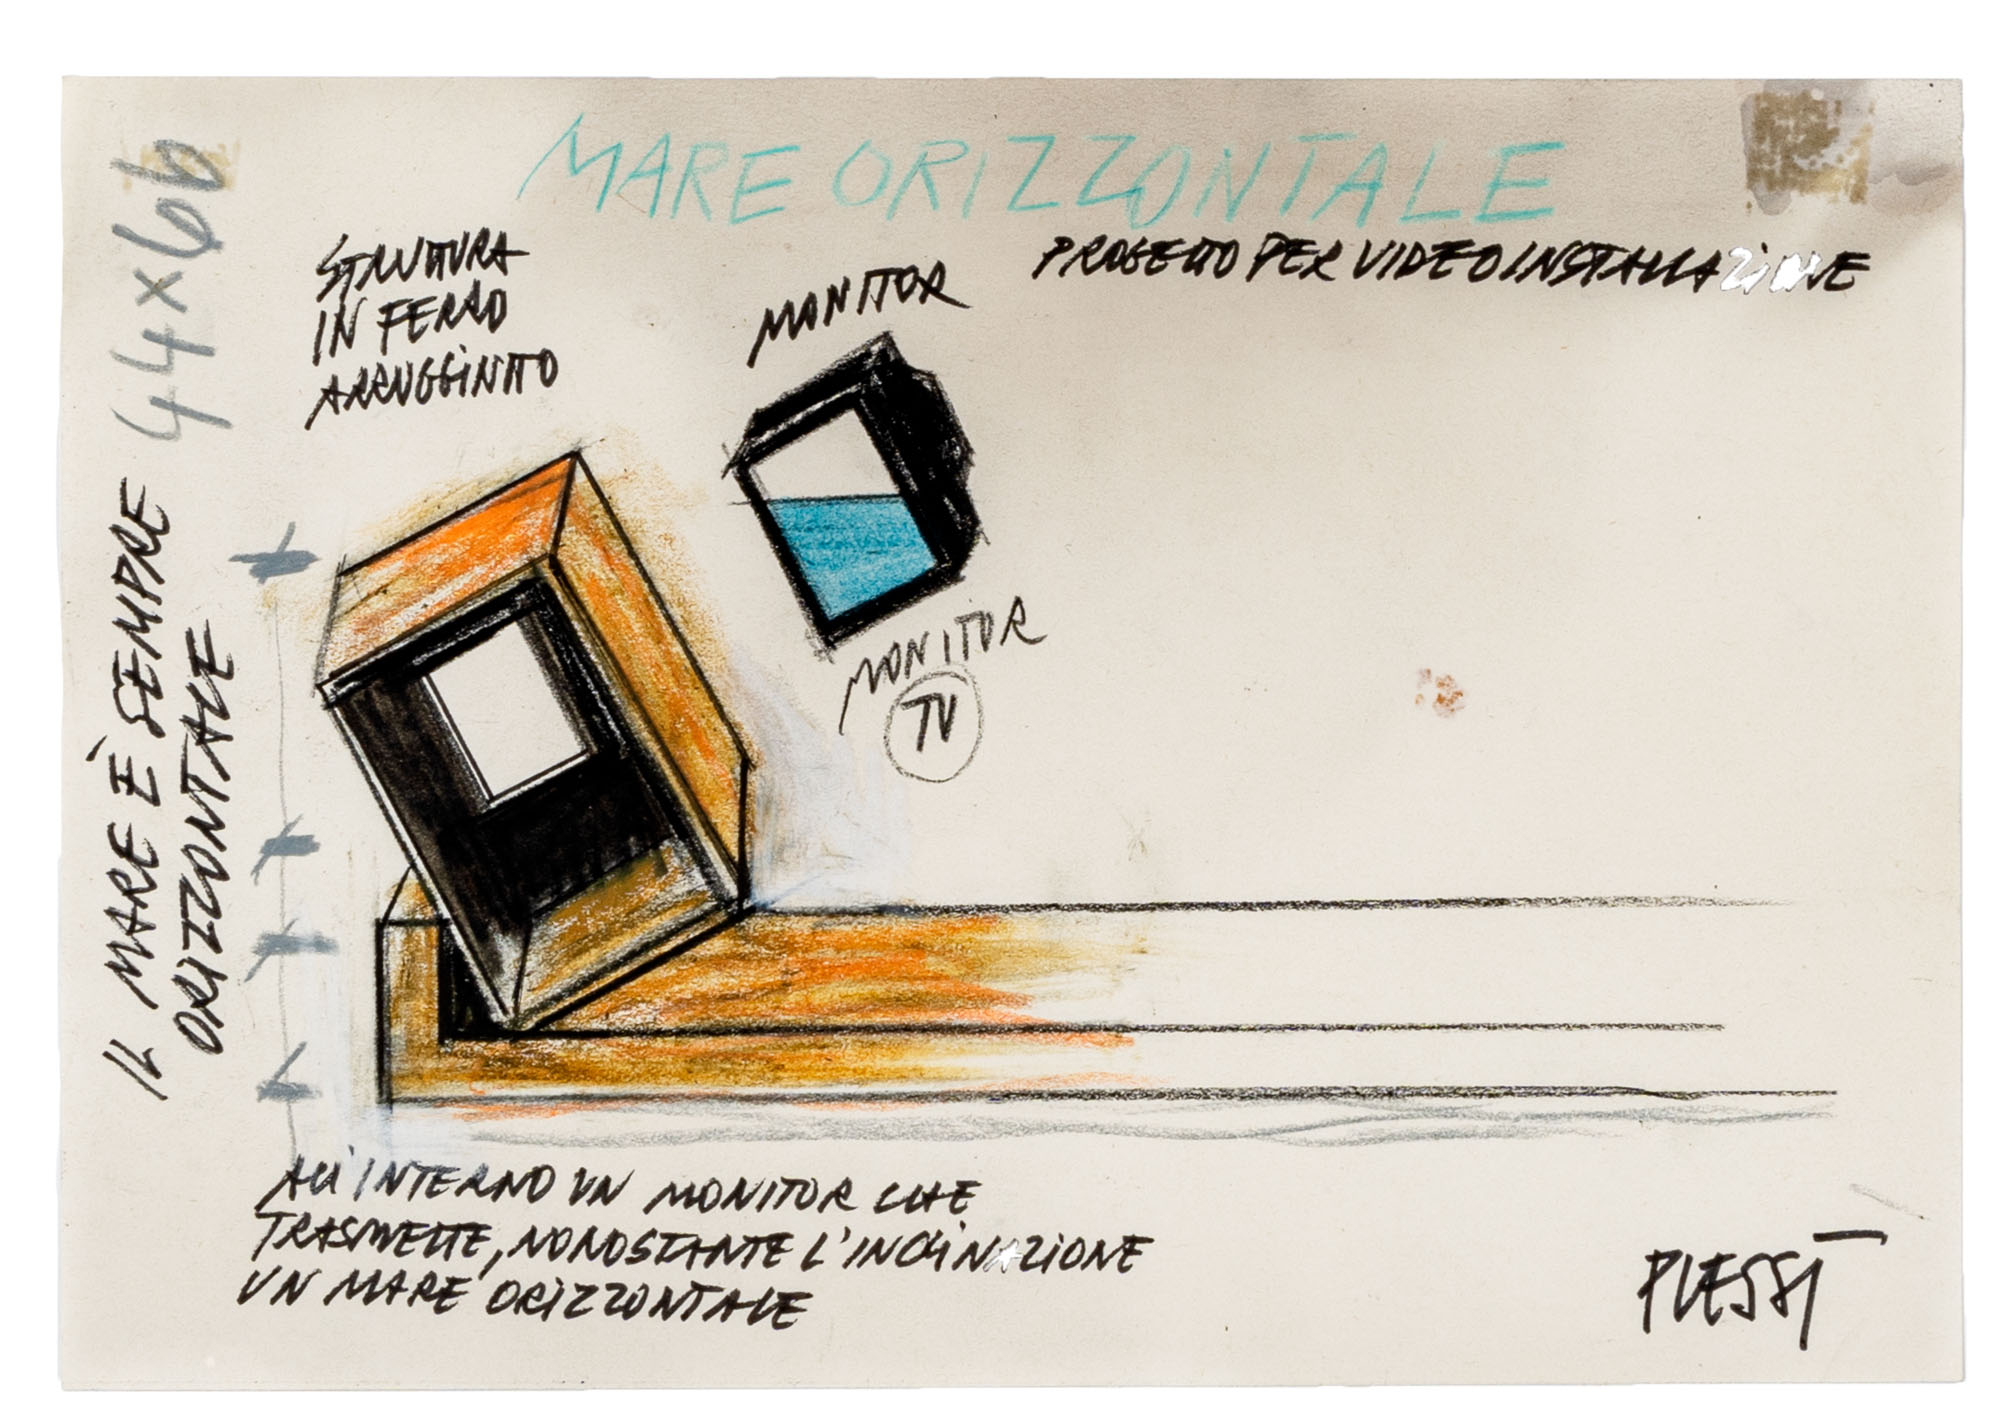 MARE ORIZZONTALE
PROGETTO PER VIDEOINSTALLAZIONE
STRUTTURA
IN FERRO
ARRUGGINITO
MONITOR
MONITOR
TV
44×66
IL MARE È SEMPRE
ORIZZONTALE
ALL'INTERNO UN MONITOR CHE
TRASMETTE, NONOSTANTE L'INCLINAZIONE
UN MARE ORIZZONTALE
PLESSI